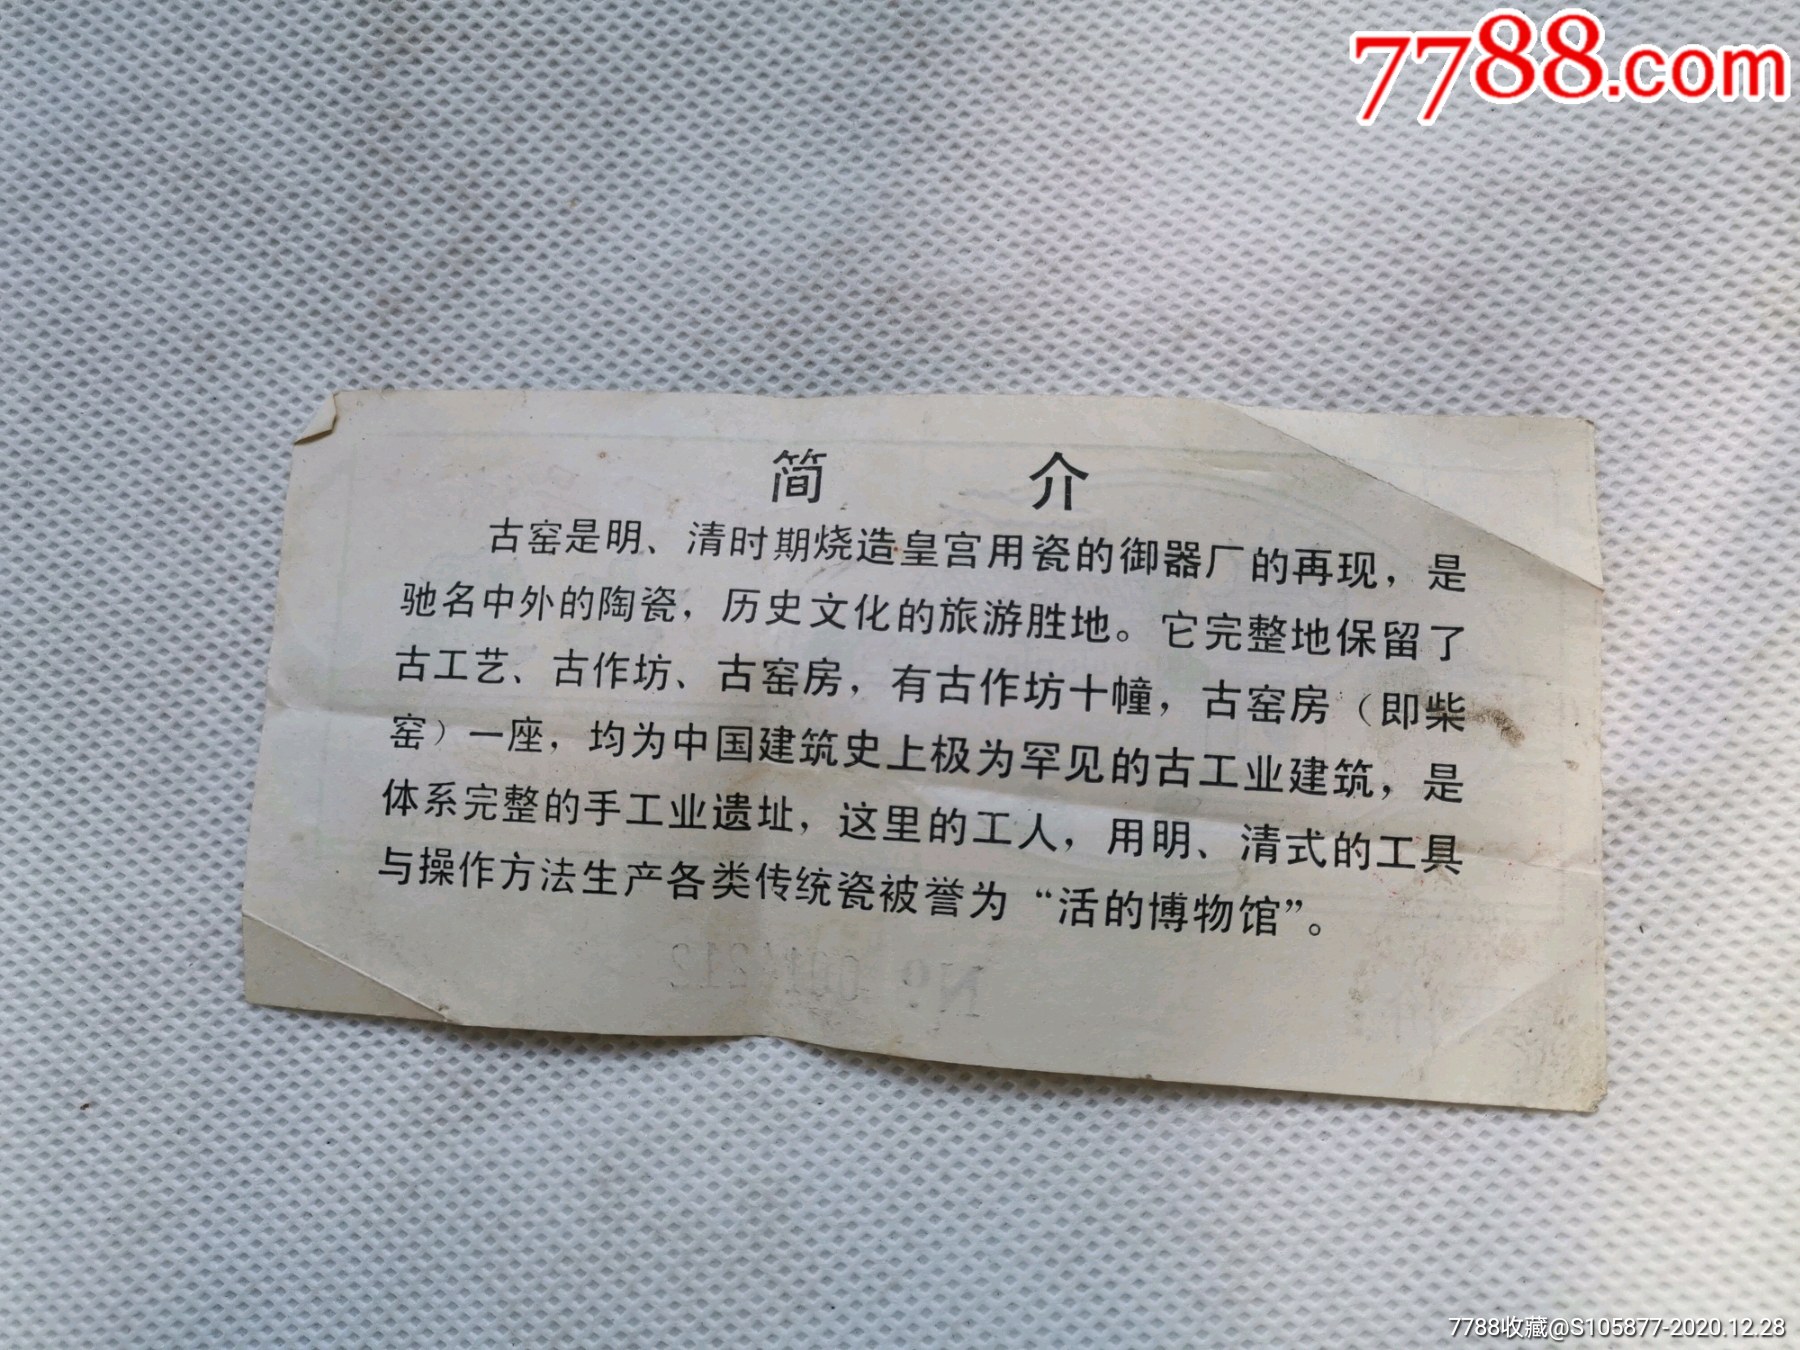 7788.com
简 介
古窑是明、清时期烧造皇宫用瓷的御器厂的再现，是
驰名中外的陶瓷，历史文化的旅游胜地。它完整地保留了
古工艺、古作坊、古窑房，有古作坊十幢，古窑房（即柴
窑）一座，均为中国建筑史上极为罕见的古工业建筑，是
体系完整的手工业遗址，这里的工人，用明、清式的工具
与操作方法生产各类传统瓷被誉为“活的博物馆”。
7788收藏@S105877-2020.12.28